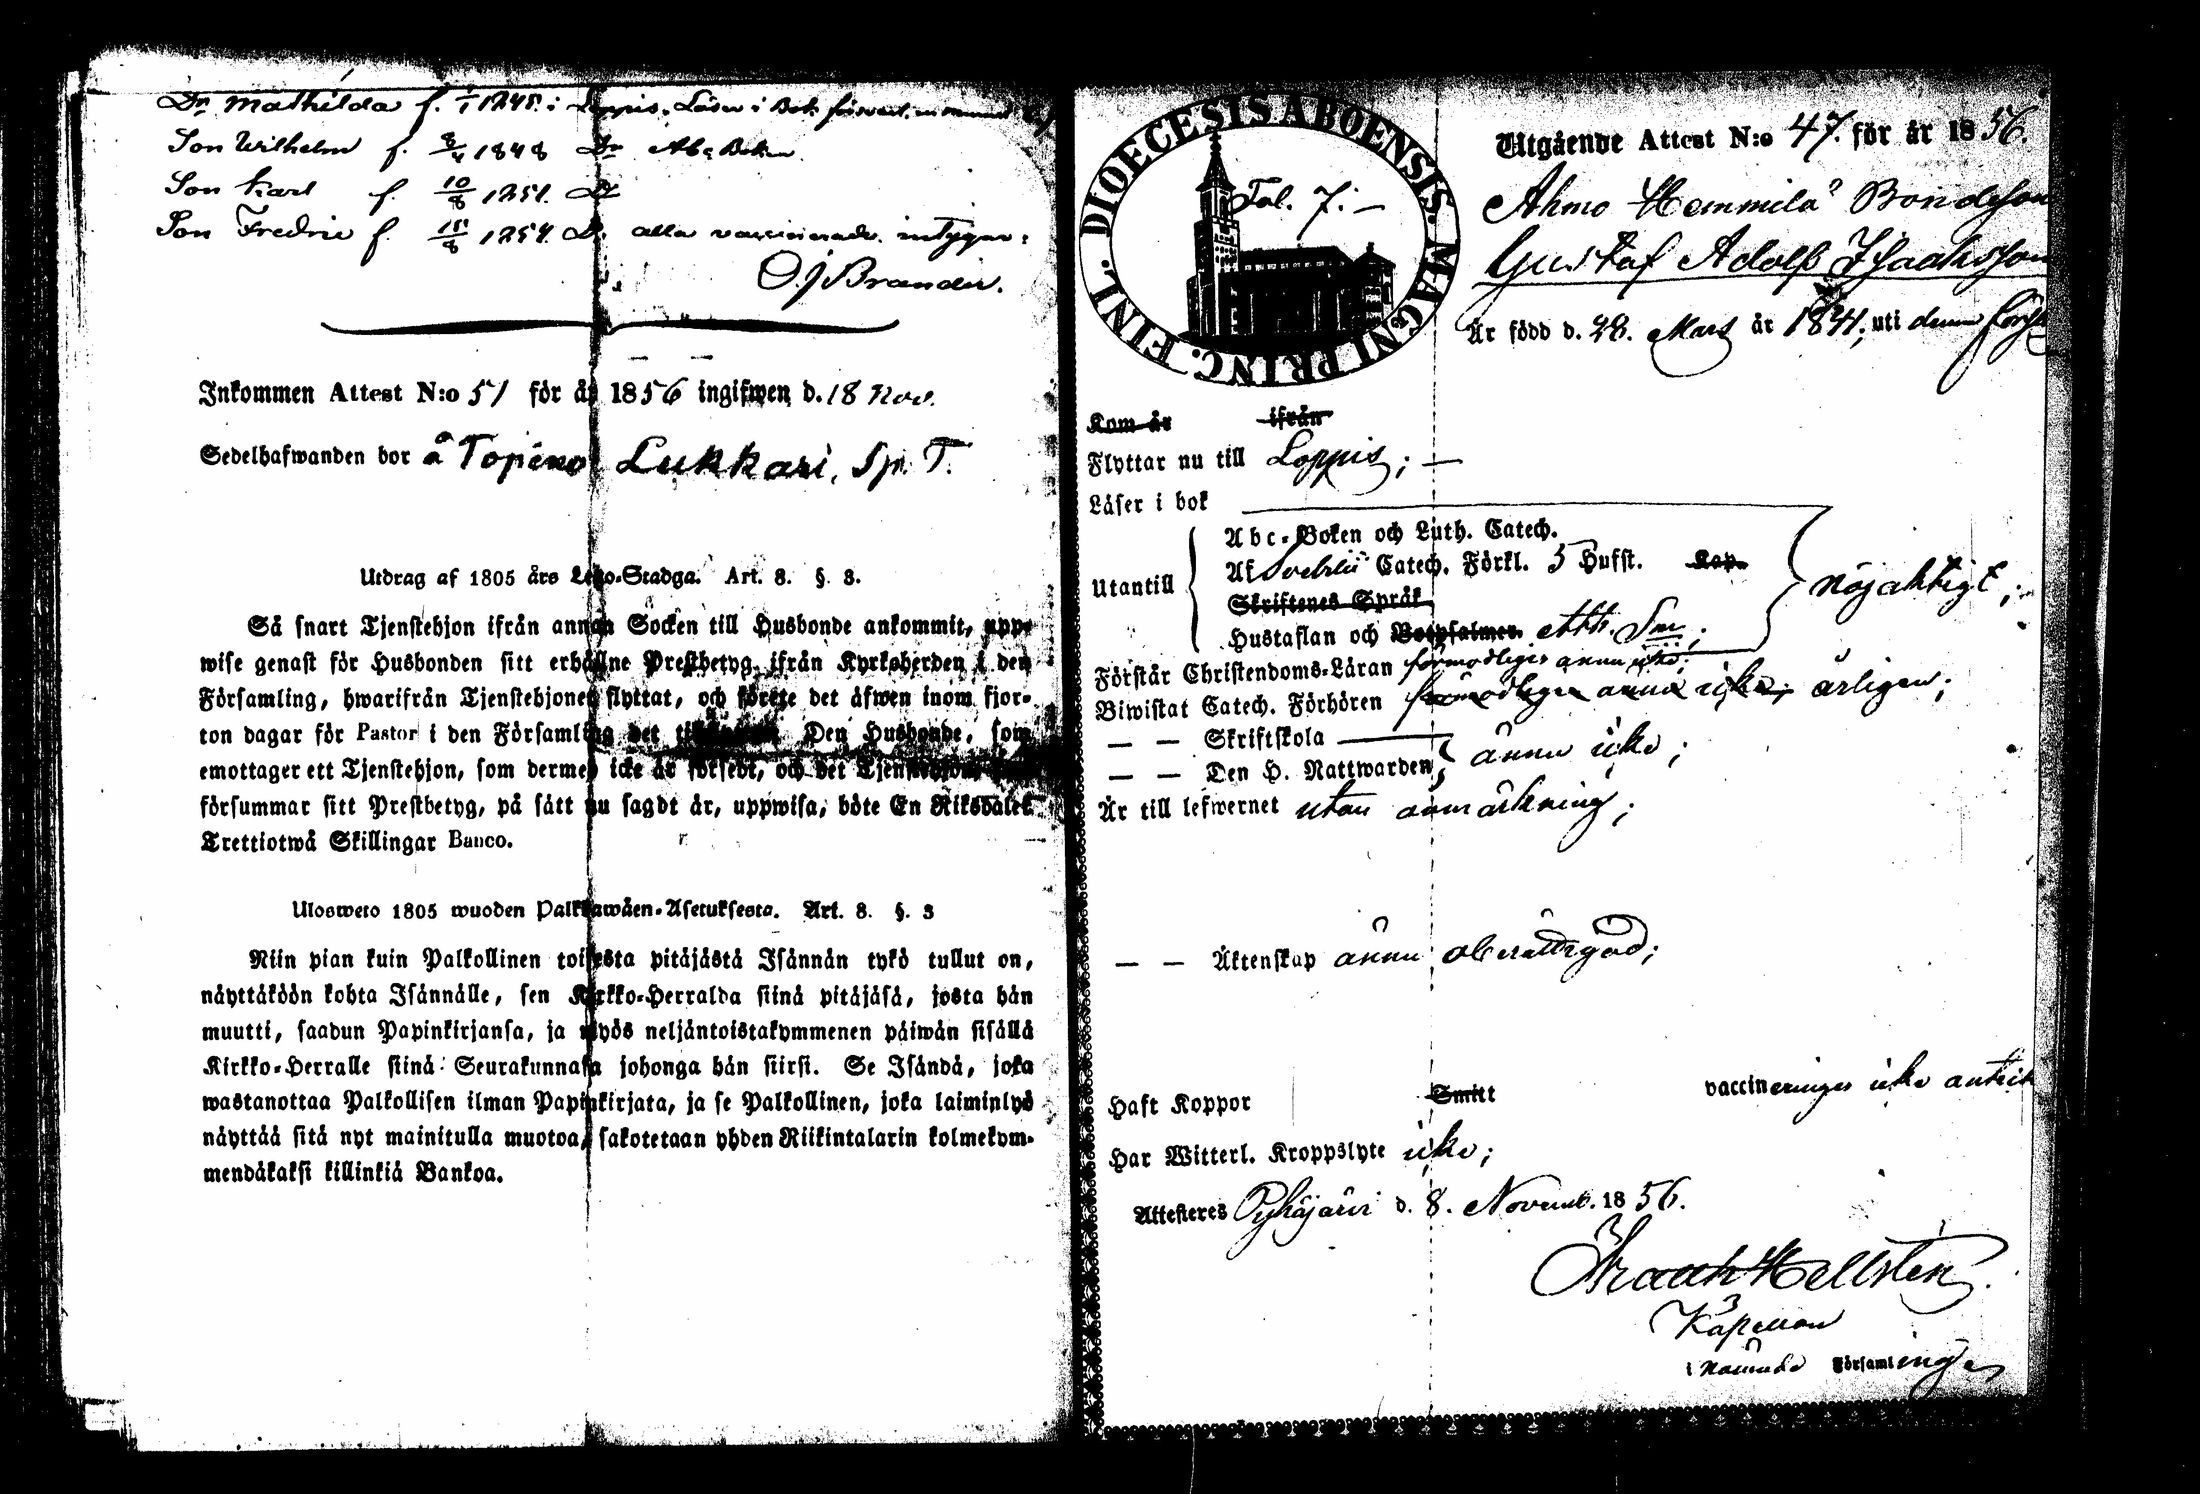 Dr Mathilda f. 1/1 1845. i Loppis. Läser i Bok
Son Wilhelm f. 2/4 1848 Do Abc Boken
Son Karl f. 10/8 1851. Do
Son Fredric f. 15/8 1854. Do alla vaccinerade. intygar:
O.J Brander.
Inkommen Attest N:o 51 för år 1856 ingifwen d. 18 Nov.
Sedelhafwanden bor å Topeno Lukkari, Sp. T.
Utdrag af 1805 års Lego-Stadga. Art. 8. §. 3.
Så snart Tjenstehjon ifrån annan Socken till Husbonde ankommit, upp-
wise genast för Husbonden sitt erhållne Prestbetyg ifrån Kyrkoherden i den
Församling, hwarifrån Tjenstehjonet flyttat, och förete det äfwen inom fjor-
ton dagar för Pastor i den Församling det Den Husbonde, som
emottager ett Tjenstehjon, som dermed icke är försedt, och det Tjenstehjon
försummar sitt Prestbetyg, på sätt nu sagdt är, uppwisa, böte En Riksdaler
Trettiotwå Skillingar Banco.
Ulosweto 1805 wuoden Palkkawäen-Asetuksesta. Art. 8. §. 3
Niin pian kuin Palkollinen toisesta pitäjästä Isännän tykö tullut on,
näyttäköön kohta Isännälle, sen Kirkko-Herralda siinä pitäjäsä, josta hän
muutti, saadun Papinkirjansa, ja myös neljäntoistakymmenen päiwän sisällä
Kirkko-Herralle siinä Seurakunnasa johonga hän siirsi. Se Isändä, joka
wastanottaa Palkollisen ilman Papinkirjata, ja se Palkollinen, joka laiminlyö
näyttää sitä nyt mainitulla muotoa, sakotetaan yhden Riikintalarin kolmekym-
mendäkaksi killinkiä Bankoa.
DIOECESIS ABOENSIS. MAGNI PRINC. FINL.
Fol. 7. –
Utgående Attest N:o 47. för år 1856.
Ahmo Hemmilä Bondeson
Gustaf Adolf Isaaksson
Är född d. 28. Mars år 1841; uti denna Förs
Kom år ifrån
Flyttar nu till Loppis; —
Läser i bok
Utantill
Abc-Boken och Luth. Catech.
Af Svebilii Catech. Förkl. 5 Hufst. Kap.
Skriftenes Språk
Hustaflan och Botpsalmer. Ath. Sm;
nöjaktigt;
Förstår Christendoms-Läran förmodligen ännu icke;
Biwistat Catech. Förhören förmodligen ännu icke; årligen;
— — Skriftskola
— — Den H. Nattwarden ännu icke;
Är till lefwernet utan anmärkning;
— — Äktenskap ännu oberättigad;
Haft Koppor Smitt vaccineringen icke anteck
Har Witterl. Kroppslyte icke;
Attesteras Pyhäjärvi d. 8. Novemb. 1856.
Hellstén
Kapellan
i nämnde Församlingen